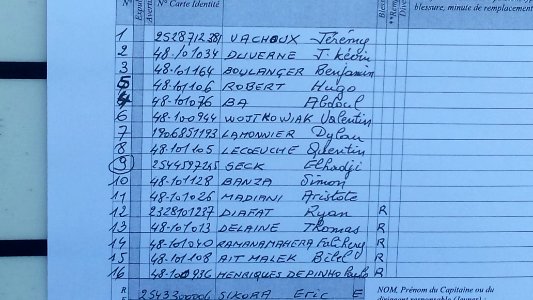 N° Expul Avertis N° Carte Identité Bles *Remp Dive blessure, minute de remplacement
1 2528712381 VACHOUX Jérémy
2 48-101034 DUVERNE J. kévin
3 48-101164 BOULANGER Benjamin
5 48-101106 ROBERT Hugo
4 48-101076 BA Abdoul
6 48-100944 WOJTKOWIAK Valentin
7 1906851193 LAMONNIER Dylan
8 48-101105 LECOEUCHE Quentin
9 2544597245 SECK Elhadji
10 48-101128 BANZA Simon
11 48-101026 MADIANI Aristote
12 2328101237 DIAFAT Ryan R
13 48-101013 DELAINE Thomas R
14 48-101040 RAMANAMAHEFA R
15 48-101108 AIT MALEK Bilel R
16 48-100936 HENRIQUES DE PINHO Paulo R
NOM, Prénom du Capitaine ou du
R 2543300006 SIKORA Eric E dirigeant responsable (Jeunes) :